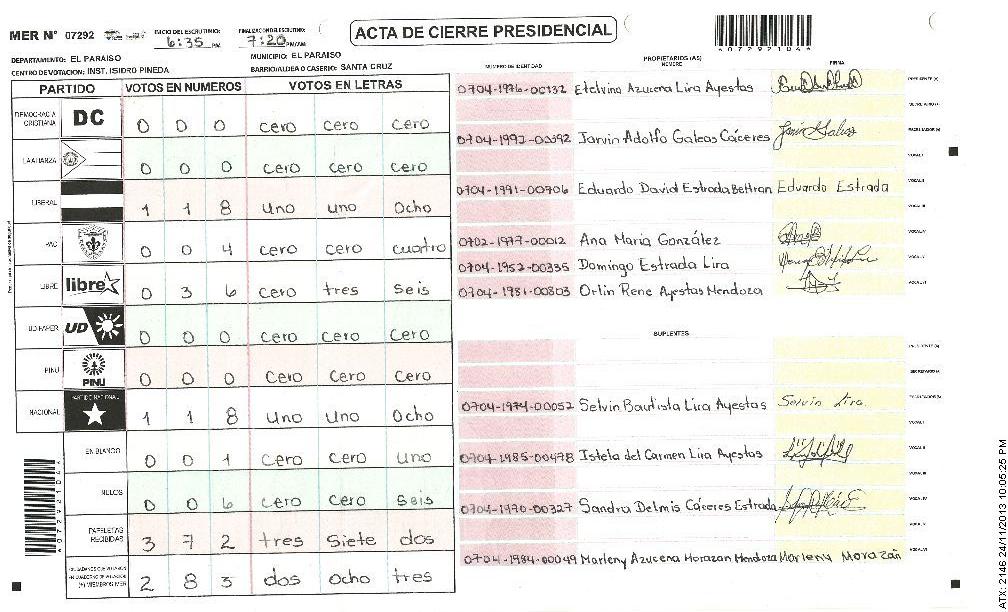 MER N° 07292 INICIO DEL ESCRUTINIO: 6:35 PM FINALIZACION DEL ESCRUTINIO: 7:20 PM/AM
ACTA DE CIERRE PRESIDENCIAL
4072921044
DEPARTAMENTO: EL PARAISO MUNICIPIO: EL PARAISO
CENTRO DE VOTACION: INST. ISIDRO PINEDA BARRIO/ALDEA O CASERIO: SANTA CRUZ
PARTIDO VOTOS EN NUMEROS VOTOS EN LETRAS
DEMOCRACIA CRISTIANA DC 0 0 0 cero cero cero
LA ALIANZA 0 0 0 cero cero cero
LIBERAL 1 1 8 uno uno ocho
PAC 0 0 4 cero cero cuatro
LIBRE libre 0 3 6 cero tres seis
UD-FAPER UD 0 0 0 cero cero cero
PINU PINU 0 0 0 cero cero cero
NACIONAL PARTIDO NACIONAL 1 1 8 uno uno ocho
EN BLANCO 0 0 1 cero cero uno
NULOS 0 0 6 cero cero seis
PAPELETAS RECIBIDAS 3 7 2 tres siete dos
CIUDADANOS QUE VOTARON EN CUADERNO DE VOTACION (+) MIEMBROS MER 2 8 3 dos ocho tres
NUMERO DE IDENTIDAD PROPIETARIOS (AS) NOMBRE FIRMA
0704-1976-00132 Etelvina Azucena Lira Ayestas PRESIDENTE (A)
SECRETARIO (A)
0704-1992-00392 Jarvin Adolfo Galeas Cáceres ESCRUTADOR (A)
VOCAL I
0704-1991-00706 Eduardo David Estrada Beltran Eduardo Estrada VOCAL II
VOCAL III
0702-1977-00012 Ana María González VOCAL IV
0704-1952-00335 Domingo Estrada Lira VOCAL V
0704-1981-00803 Orlin Rene Ayestas Mendoza VOCAL VI
SUPLENTES
PRESIDENTE (A)
SECRETARIO (A)
0704-1974-00052 Selvin Bautista Lira Ayestas Selvin Lira ESCRUTADOR (A)
VOCAL I
0704-1985-00498 Istela del Carmen Lira Ayestas VOCAL II
VOCAL III
0704-1970-00327 Sandra Delmis Cáceres Estrada VOCAL IV
VOCAL V
0704-1984-00049 Marleny Azucena Morazan Mendoza Marleny Morazán VOCAL VI
4072921044
ATX: 2146 24/11/2013 10:05:25 PM